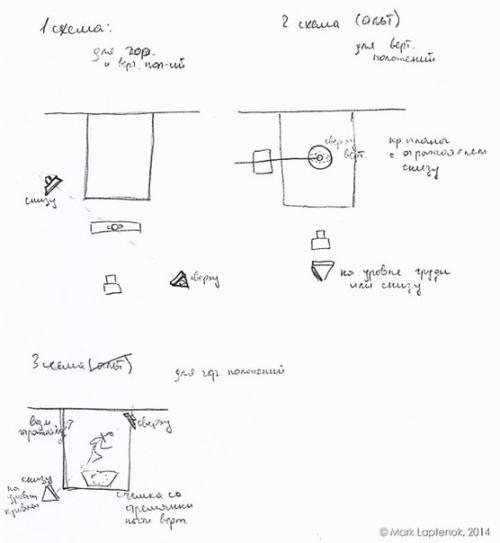 1 схема:
для гор.
и верт. пол-ий
2 схема (альт)
для верт.
положений
снизу
сверху
сверху
верт.
кр. планы
с отражателем
снизу
на уровне груди
или снизу
3 схема (альт)
для гор. положений
отражат.
сверху
снизу
на уровне
кровати
съемка со
стремянки
почти верт.
© Mark Laptenok, 2014